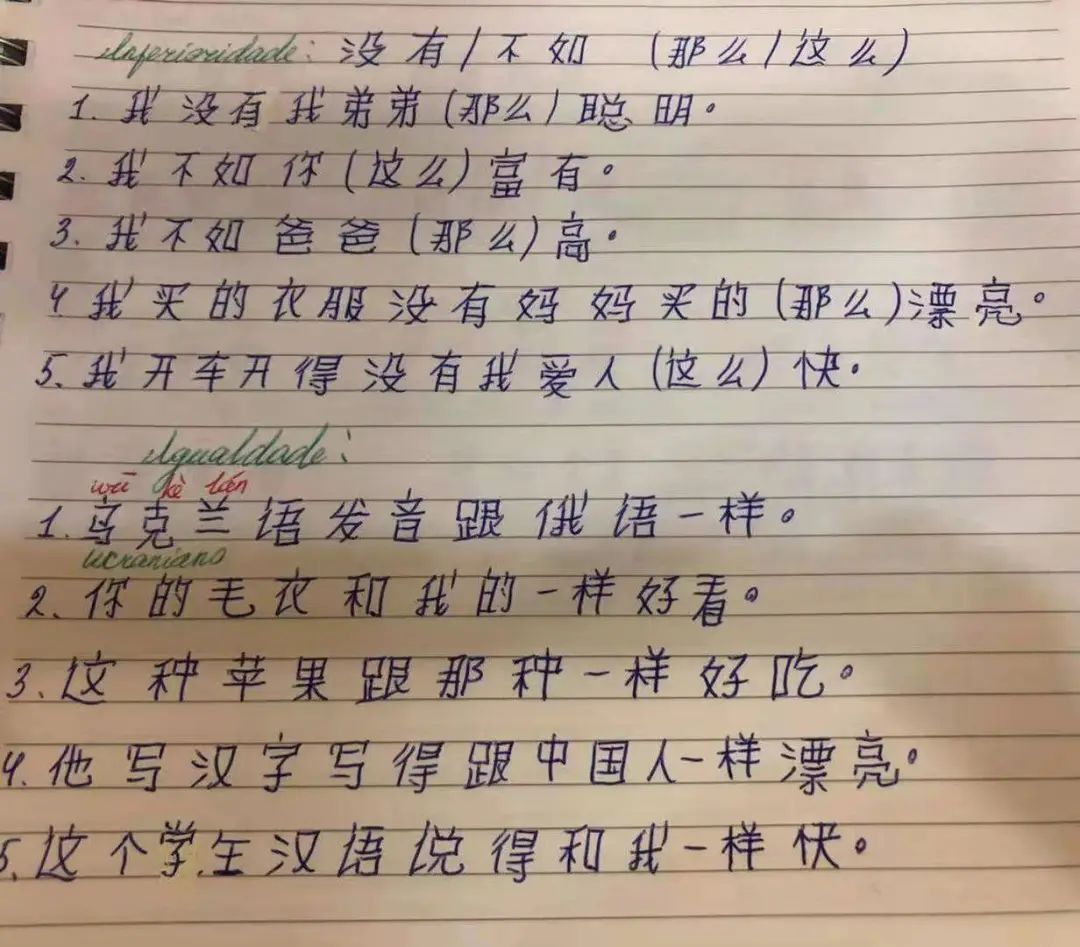 Inferioridade: 没有/不如 (那么/这么)
1. 我没有我弟弟(那么)聪明。
2. 我不如你(这么)富有。
3. 我不如爸爸(那么)高。
4 我买的衣服没有妈妈买的(那么)漂亮。
5. 我开车开得没有我爱人(这么)快。
Igualdade:
wū kè lán
1. 乌克兰语发音跟俄语一样。
ucraniano
2. 你的毛衣和我的一样好看。
3. 这种苹果跟那种一样好吃。
4. 他写汉字写得跟中国人一样漂亮。
5. 这个学生汉语说得和我一样快。